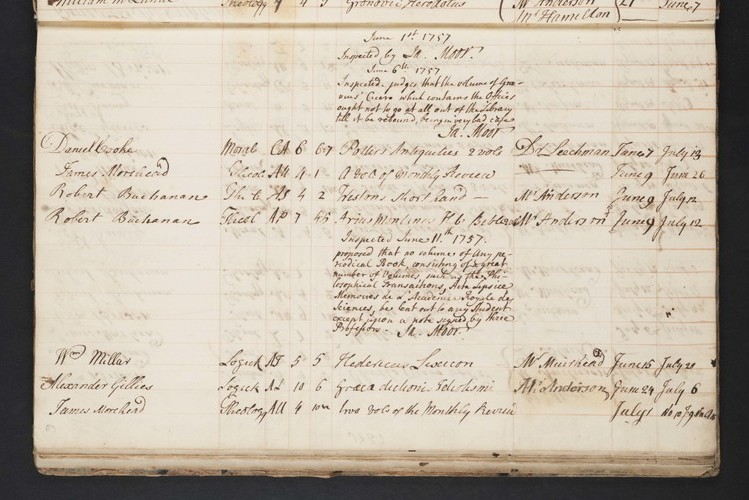 Theology 4 3 Gronovii Herodotus Mr Anderson Mr Hamilton 21 June 7
June 1st 1757
Inspected by Ja. Moor.
June 6th 1757
Inspected. judges that the volume of Græ-
vius' Cicero which contains the Offices
ought not to go at all out of the Library
till it be rebound, being in very bad case
Ja. Moor
Daniel Cooke Moral 6 Potter's Antiquities 2 vols Dr Leachman June 7 July 13
James Morehead 4 1 A vol of Monthly Review June 9 June 26
Robert Buchanan 4 2 Westons Short hand Mr Anderson June 9 July 12
Robert Buchanan 7 Arius Montanus Mr Anderson June 9 July 12
Inspected June 11th. 1757.
proposed that no volume of any pe-
riodical Book, consisting of a great
number of Volumes, such as the Phi-
losophical Transactions, Acta Lipsiæ
Memoires de L'Academie Royale de
Sciences, be lent out to any Student
except upon a note signed by three
Professors. Ja. Moor.
Wm Millar Logick 5 5 Hedericus Lexicon Mr Muirhead June 15 July 21
Alexander Gillies Logick 10 6 Mr Anderson June 24 July 6
James Morehead Theology 4 two vols of the Monthly Review July 1